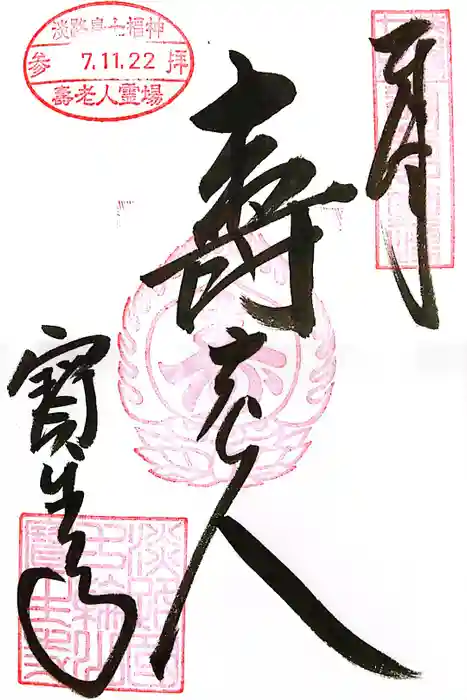 淡路島七福神
参 7.11.22 拝
壽老人霊場
奉拝
壽老人
寶生寺